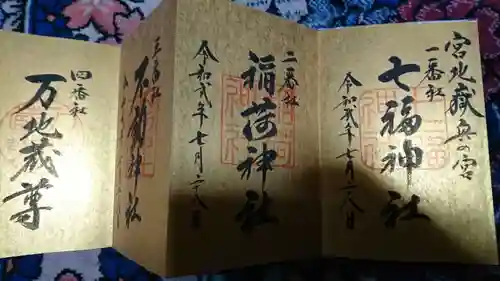 宮地嶽奥の宮
一番社
七福神社
令和弐年七月二八日
二番社
稲荷神社
令和弐年七月二八日
三番社
不動神社
四番社
万地蔵尊